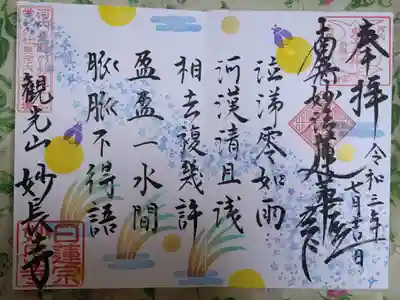 奉拝
令和三年
七月吉日
南無妙法蓮華経
泣涕零如雨
河漢清且浅
相去複幾許
盈盈一水間
脈脈不得語
観光山 妙長寺
日蓮宗